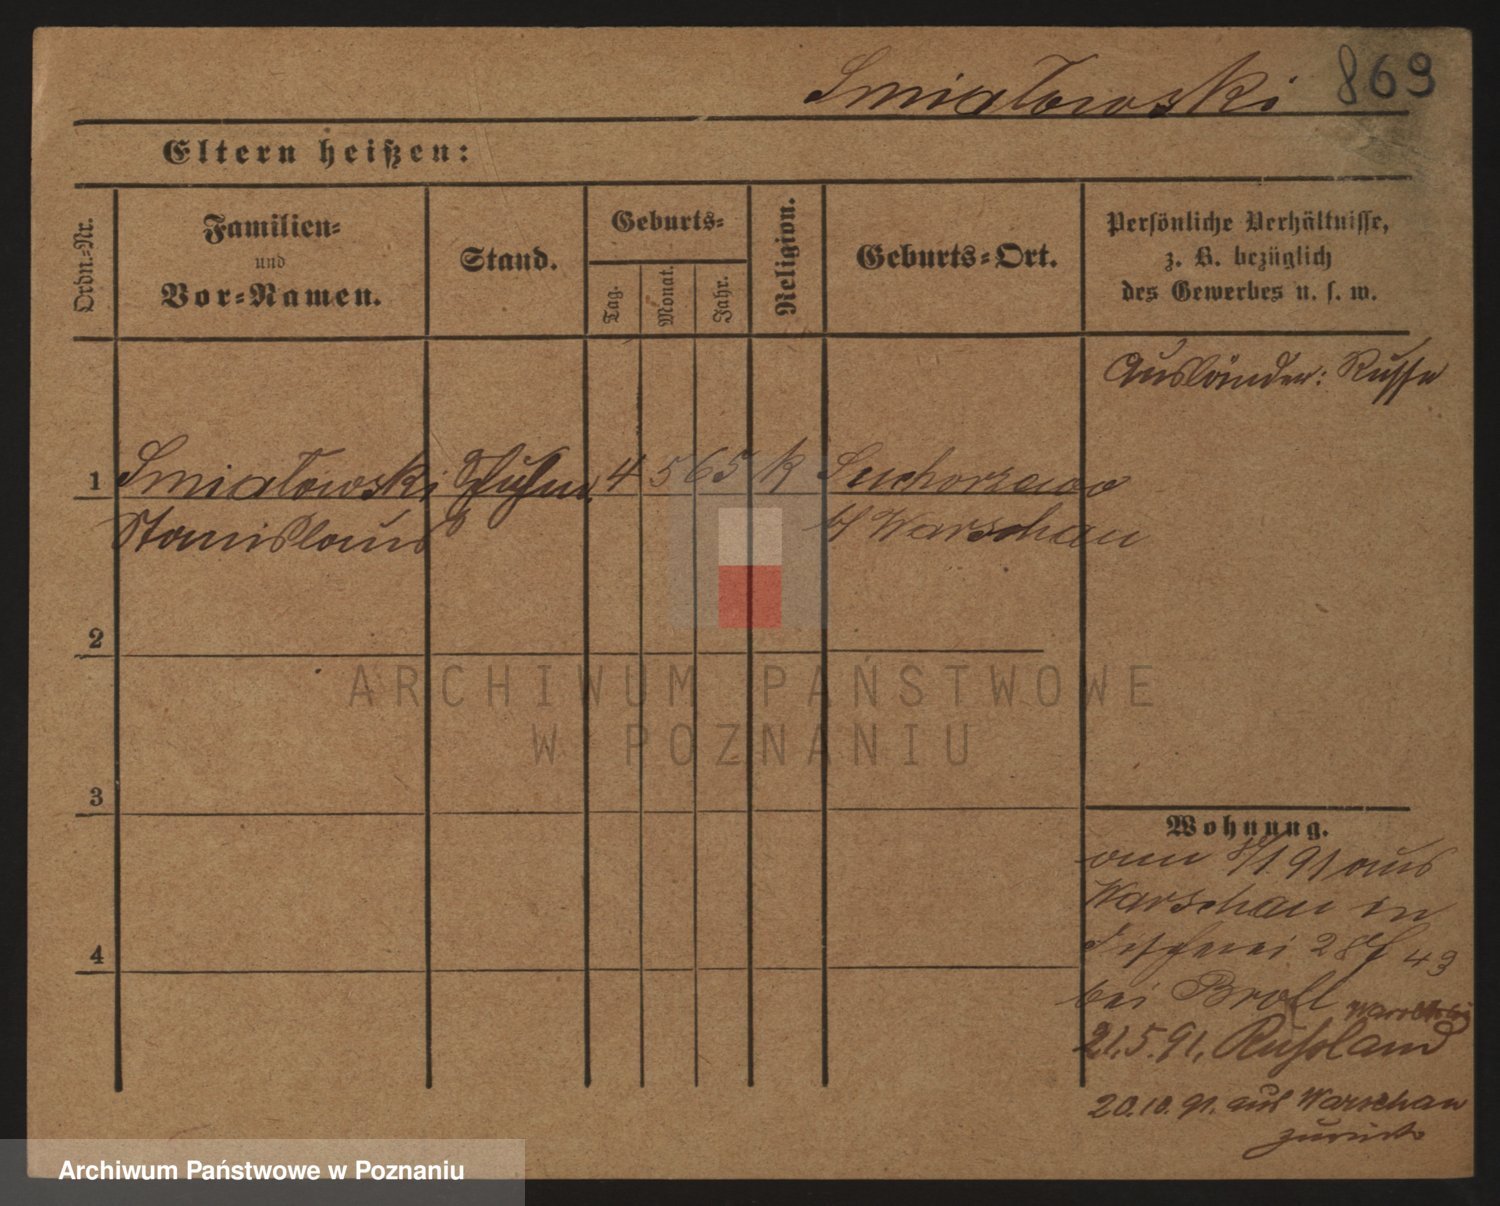 Smiatowski 869
Eltern heißen:
Ordn.-Nr.
Familien-
und
Vor-Namen.
Stand.
Geburts-
Tag.
Monat.
Jahr.
Religion.
Geburts-Ort.
Persönliche Verhältnisse,
z. B. bezüglich
des Gewerbes u. s. w.
Ausländer: Russe
1 Smiatowski 4 5 65 k
Stanislaus b/ Warschau
2
3
4
Wohnung.
91 aus
Warschau in
Fischerei 28 43
bei
21.5.91, Russland
20.10.91. aus Warschau
zurück
ARCHIWUM PAŃSTWOWE
W POZNANIU
Archiwum Państwowe w Poznaniu